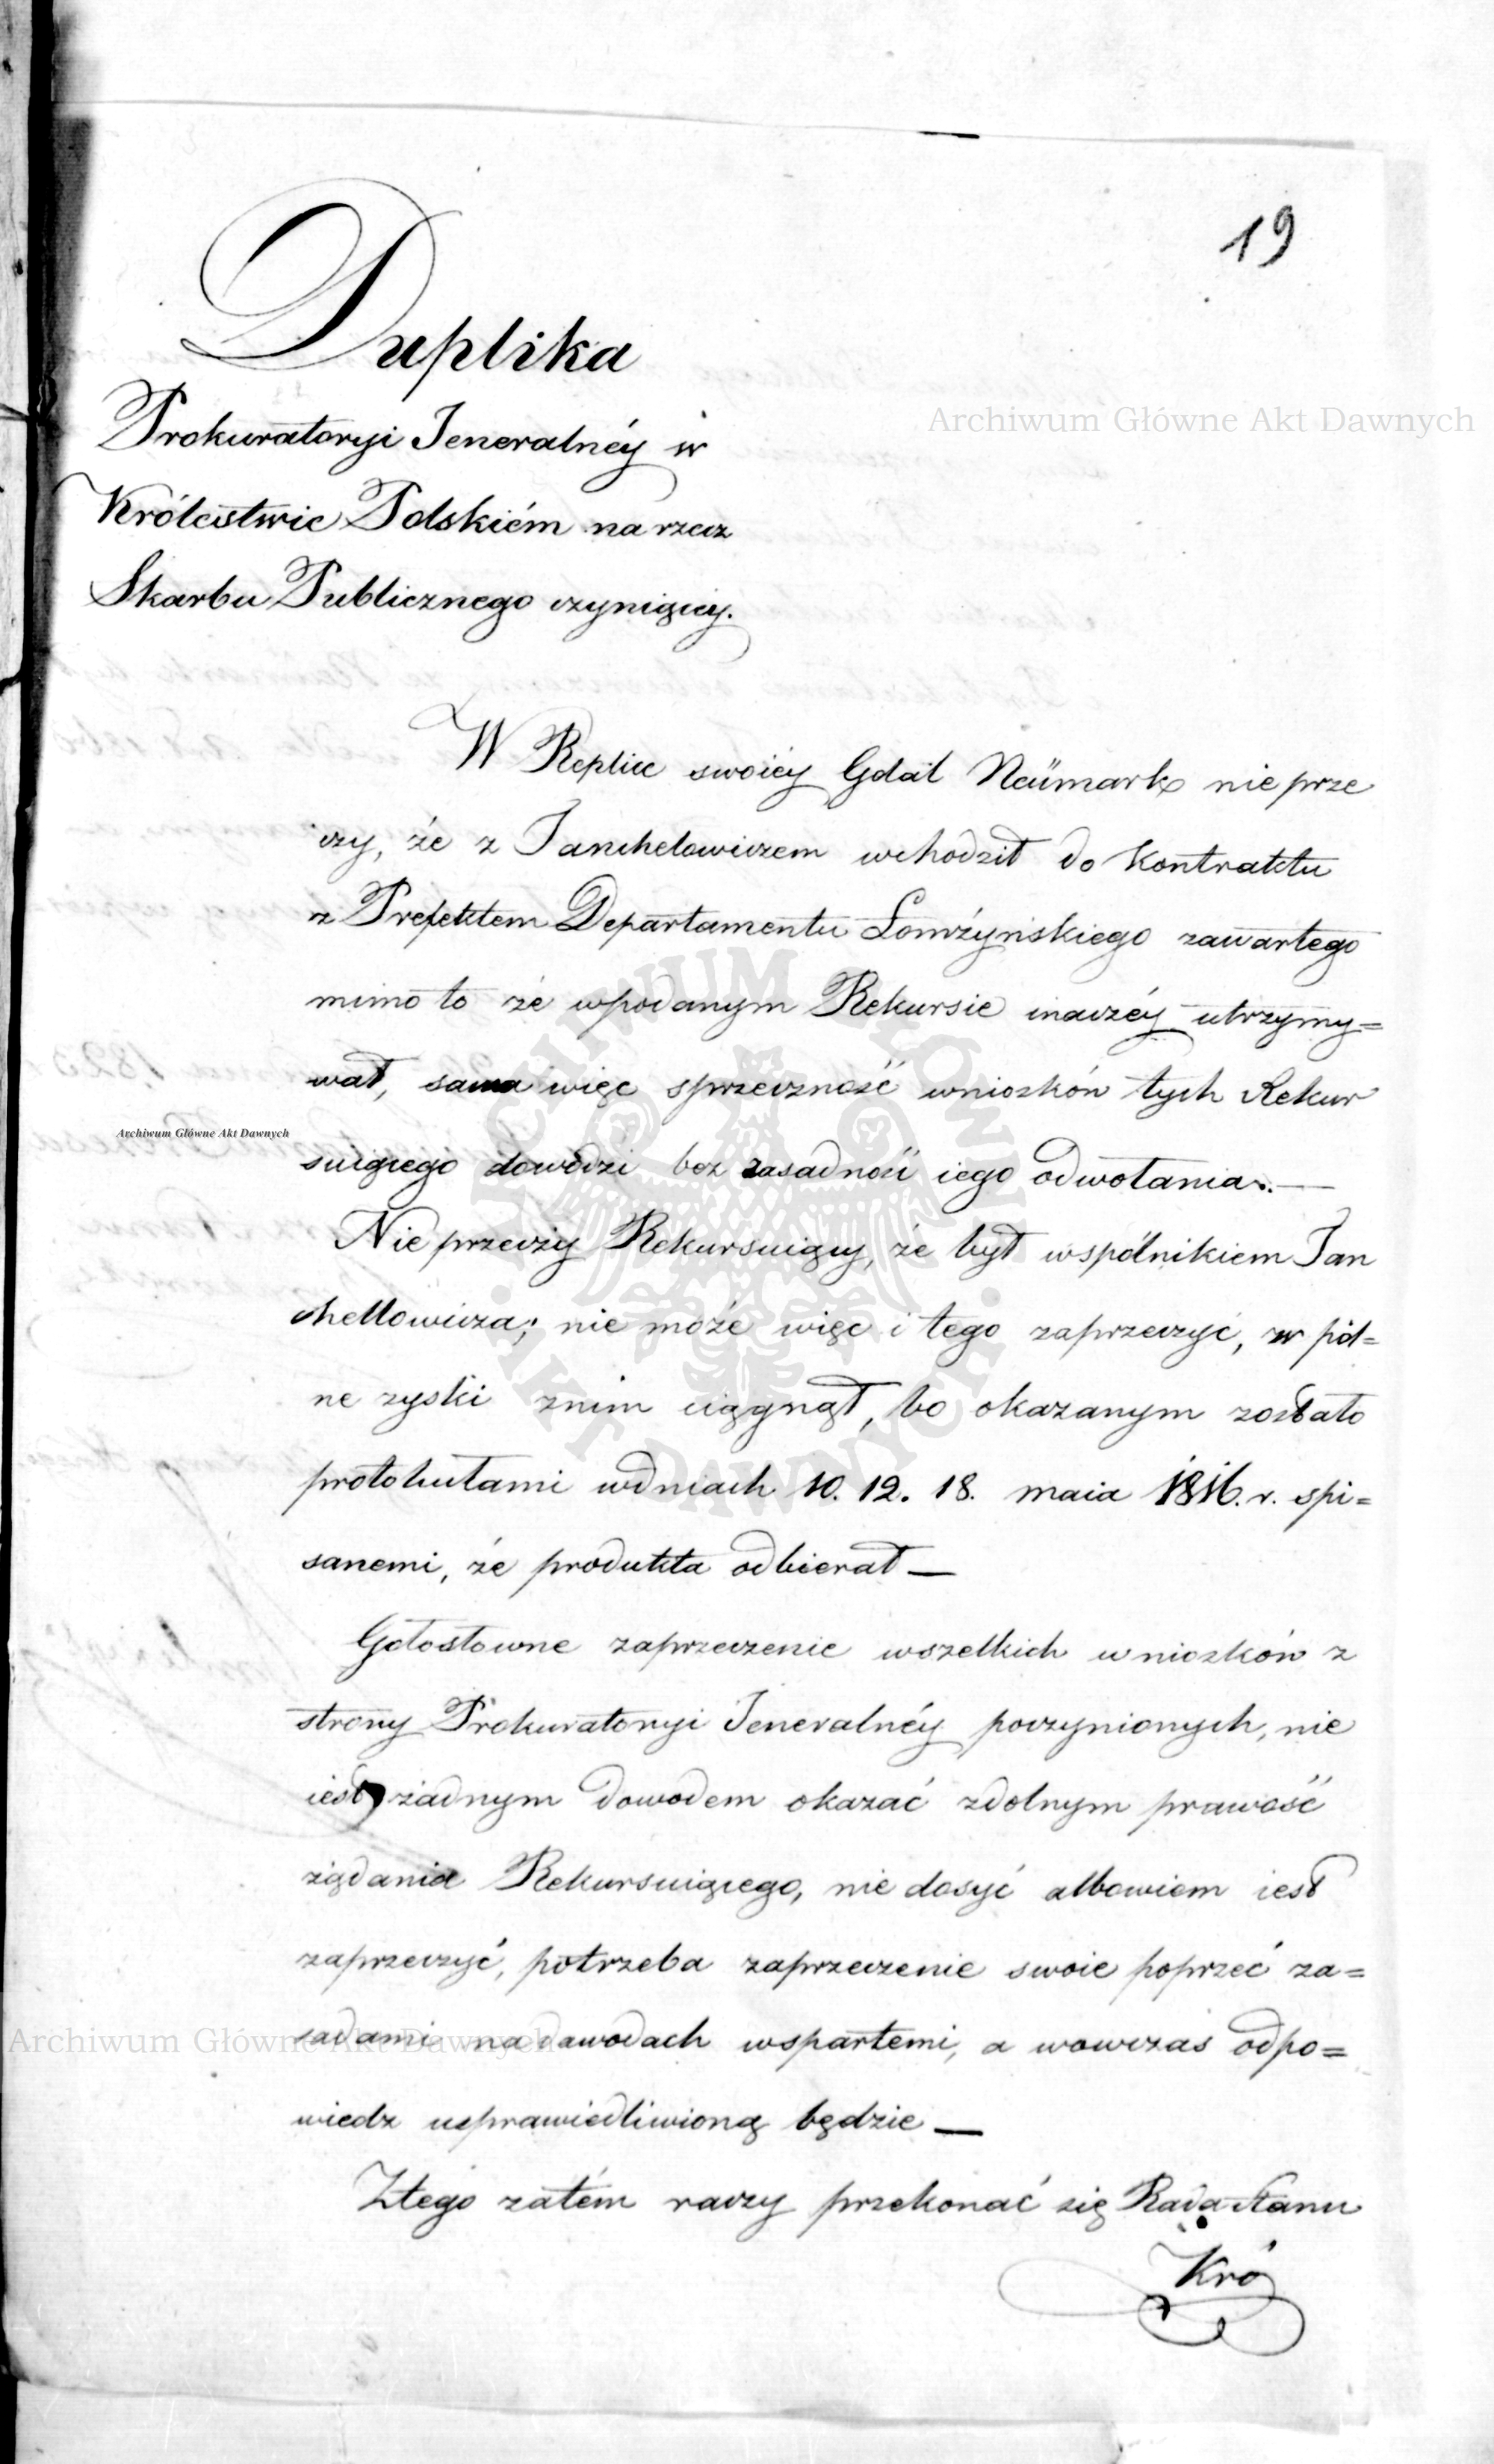 19
Duplika
Prokuratoryi Jeneralnéy w
Królestwie Polskiém na rzecz
Skarbu Publicznego czyniącey.
W Replice swoiéy Gdal Neümark nie prze
czy, że z Janchelowiczem wchodził do Kontraktu
z Prefektem Departamentu Łomżyńskiego zawartego
mimo to że wpodanym Rekursie inaczéy utrzymy=
wał, sama więc sprzeczność wniosków tych Rekur
suiącego dowodzi bez zasadność iego odwołania.—
Nie przeczy Rekursuiący, że był wspólnikiem Jan
chellowicza; nie może więc i tego zaprzeczyć, w spól=
ne zyski znim ciągnął, bo okazanym zostało
protokułami wdniach 10. 12. 18. maia 1816. r. spi=
sanemi, że produkta odbierał —
Gołosłowne zaprzeczenie wszelkich wniosków z
strony Prokuratoryi Jeneralnéy poczynionych, nie
iest żadnym dowodem okazać zdolnym prawość
żądania Rekursuiącego, nie dosyć albowiem iest
zaprzeczyć, potrzeba zaprzeczenie swoie poprzeć za=
sadami na dowodach wspartemi, a wowczas odpo=
wiedz usprawiedliwioną będzie —
Ztego zatém raczy przekonać się Rada Stanu
Kró
Archiwum Główne Akt Dawnych
Archiwum Główne Akt Dawnych
Archiwum Główne Akt Dawnych
ARCHIWUM GŁÓWNE · AKT DAWNYCH ·